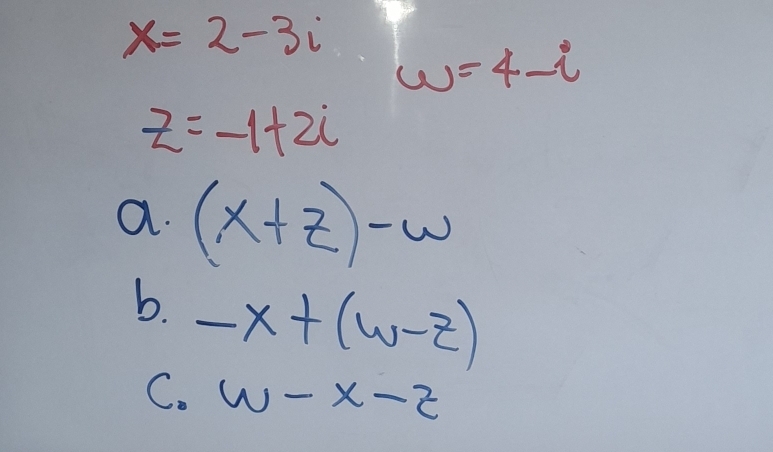 x = 2-3i
w = 4-i
z = -1+2i
a. (x+z)-w
b. -x+(w-z)
c. w-x-z